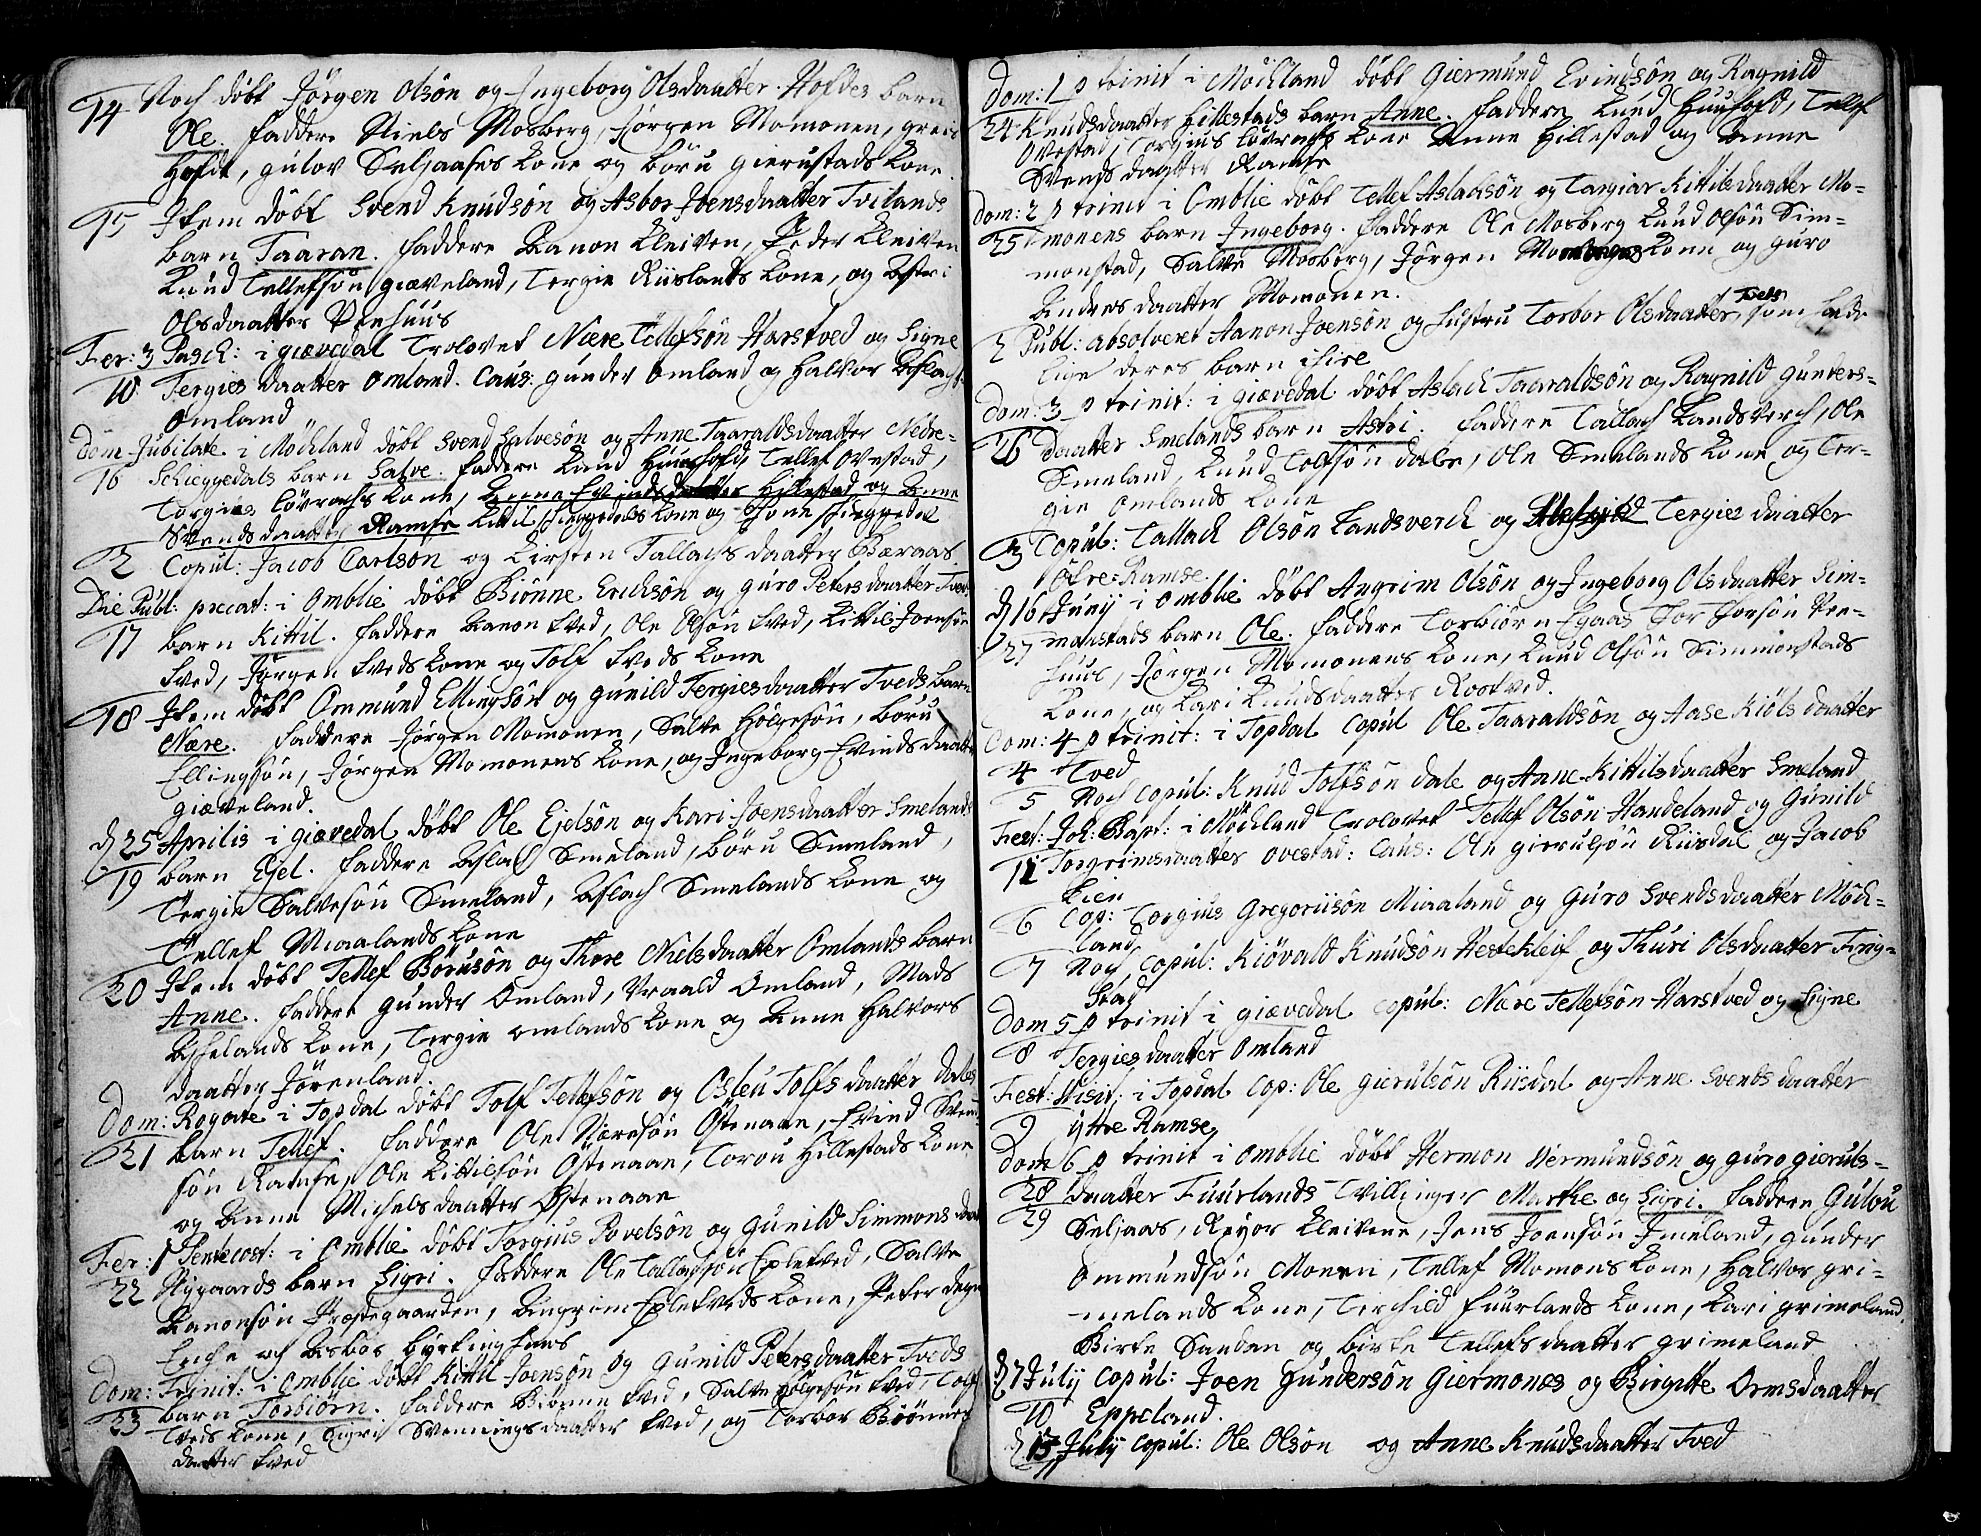 14 Noch döbt Jörgen Olsön og Ingeborg Olsdaatter Hofdes barn
Ole. Faddere Niels Mosberg, Jörgen Momonen,
Hofde, gulov Seljaases Kone og böru gierustads Kone.
15 Item döbt Svend Knudsön og Asbor Joensdaatter Tvilands
barn Taaran. Faddere Aanon Kleiven, Peder Kleiven
Knud Tellefsön giæveland, Tergie Riislands Kone, og
Olsdaatter
Fer: 3 Pasch: i giævedal Trolovet Nære Tellefsön Harstved og Signe
10 Tergiesdaatter Omland. Caus: gunder Omland og Halvor Aslags
Omland
Dom Jubilate i Möckland döbt Svend Salvesön og Anne Taaraldsdaatter Nedre-
16 Scheggedals barn Salve. Faddere Knud Tellef Ovestad,
Torgius Lövrachs Kone, Anne Evindsdaatter Hillestad og Anne
Svendsdaatter Ramse Kittil Scheggedals Kone og Tone Scheggedal
2 Copul: Jacob Carlsön og Kirsten Tallachsdaatter Bæraas
Die Publ: precat: i Omblie döbt Biönne Erichsön og guro Petersdaatter Tveds
17 barn Kittil. Faddere Aanon Tved, Ole Olsön Tved, Kittil Joensön
Tved, Jörgen Tveds Kone og Tolf Tveds Kone
18 Item döbt Ommund Ellingsön og gunild Tergiesdaatter Tveds barn
Nære. Faddere Jörgen Momonen, Salve Hölgesön, böru
Ellingsön, Jörgen Momonens Kone, og Ingeborg Evindsdaatter
giæveland.
d 25 Aprilis i giævedal döbt Ole Ejelsön og Kari Joensdaatter Smelands
19 barn Ejel. Faddere Aslach Smeland, böru Smeland,
Tergie Salvesön Smeland, Aslach Smelands Kone og
Tellef Miaalands Kone
20 Item döbt Tellef Börusön og Thore Nielsdaatter Omlands barn
Anne. Faddere gunder Omland, Vraald Omland, Mads
Kone, Tergie omlands Kone og Anne Halvors
daatter Jörenland
Dom: Rogate i Topdal döbt Tolf Tellefsön og Osleu Tolfsdaatter Dales
21 barn Tellef. Faddere Ole Næresön Östenaae, Evind Svend
sön Ramse, Ole Kittilsön Östenaae, Torou Hillestads Kone
og Anne Michelsdaatter Östenaae
Fer: 1 Pentecost: i Omblie döbt Torgius Povelsön og Gunild Simmonsdaat
22 Nygaards barn Sigri. Faddere Ole Tallachsön Epletved, Salve
Aanonsön Præstegaarden, Angrim Epletveds Kone, Peter
og Asbor
Dom: Trinit: i Omblie döbt Kittil Joensön og Gunild Petersdaatter Tveds
23 barn Torbiörn. Faddere Biönne Tved, Salve Hölgesön Tved, Tolf
Tveds Kone, Sigri Svenningsdaatter Tved, og Torbor Biönnes
daatter Tved
Dom: 1 p trinit i Möckland döbt Giermund Evindsön og Ragnild
24 Knudsdaatter Hillestads barn Anne. Faddere Knud Tellef
Ovestad, Torgius Lövrachs Kone Anne Hillestad og Anne
Svendsdaatter Ramse
Dom: 2 p trinit i Omblie döbt Tellef Aslachsön og Targiær Kittilsdaatter Mo-
25 monens barn Ingeborg. Faddere Ole Mosberg Knud Olsön Sim-
monstad, Salve Mosberg, Jörgen Momonens Kone og guro
Andersdaatter Momonen.
2 Publ: absolveret Aanon Joensön og hustru Torbor Olsdaatter Tveds, som hafde
deres barn
Dom: 3 p trinit: i giævedal döbt Aslach Taaraldsön og Ragnild gunders-
26 daatter Smelands barn Astri. Faddere Tallach Landsverch, Ole
Smeland, Knud Tolfsön Dale, Ole Smelands Kone og Ter-
gie Omlands Kone
3 Copul: Tallach Olsön Landsverch og Tergiesdaatter
Öfre-Ramse.
d 16 Junij i Omblie döbt Angrim Olsön og Ingeborg Olsdaatter Sim-
27 monstads barn Ole. Faddere Torbiörn Egaas Tor Torsön
Jörgen Momonens Kone, Knud Olsön Simmonstads
Kone, og Kari Knudsdaatter Rostved.
Dom: 4 p trinit: i Topdal Copul Ole Taaraldsön og Aase Kiölsdaatter
4 Tved
5 Noch copul: Knud Tolfsön Dale og Anne Kittilsdaatter Smeland
Fest: Joh: Bapt: i Möckland Trolovet Tellef Olsön Handeland og Gunild
11 Torgrimsdaatter Ovestad: Caus: Ole gierulsön Riisdal og Jacob
Lien
6 Cop: Torgius Gregoriisön Miaaland og Guro Svendsdaatter Möck-
land
7 Noch copul: Kiövald Knudsön Hestekleif og Thuri Olsdaatter Frig-
stad
Dom 5 p trinit i giævedal copul: Nære Tellefsön Harstved og Signe
8 Tergiesdaatter Omland
Fest: Visit: i Topdal cop: Ole gierulsön Riisdal og Anne Svendsdaatter
9 ÿtre Ramse
Dom 6 p trinit i Omblie döbt Hermon Vermundsön og guro gieruls-
28 daatter Fuurlands Tvillinger Marthe og Sigri. Faddere Gulou
29 Seljaas, Reyor Kleivene, Jens Joensön Jmeland, gunder
Ommundsön Moen, Tellef Momons Kone, Halvor gri-
melands Kone, Tarchild Fuurlands Kone, Kari grimeland,
Birte Sanden og birte Tellefsdaatter grimeland
d 7 Julij Copul: Joen Gundersön Giermonæs og Birgitte Ormsdaatter
10 Eppeland.
d 13 Julij copul: Ole Olsön og Anne Knudsdaatter Tved
11